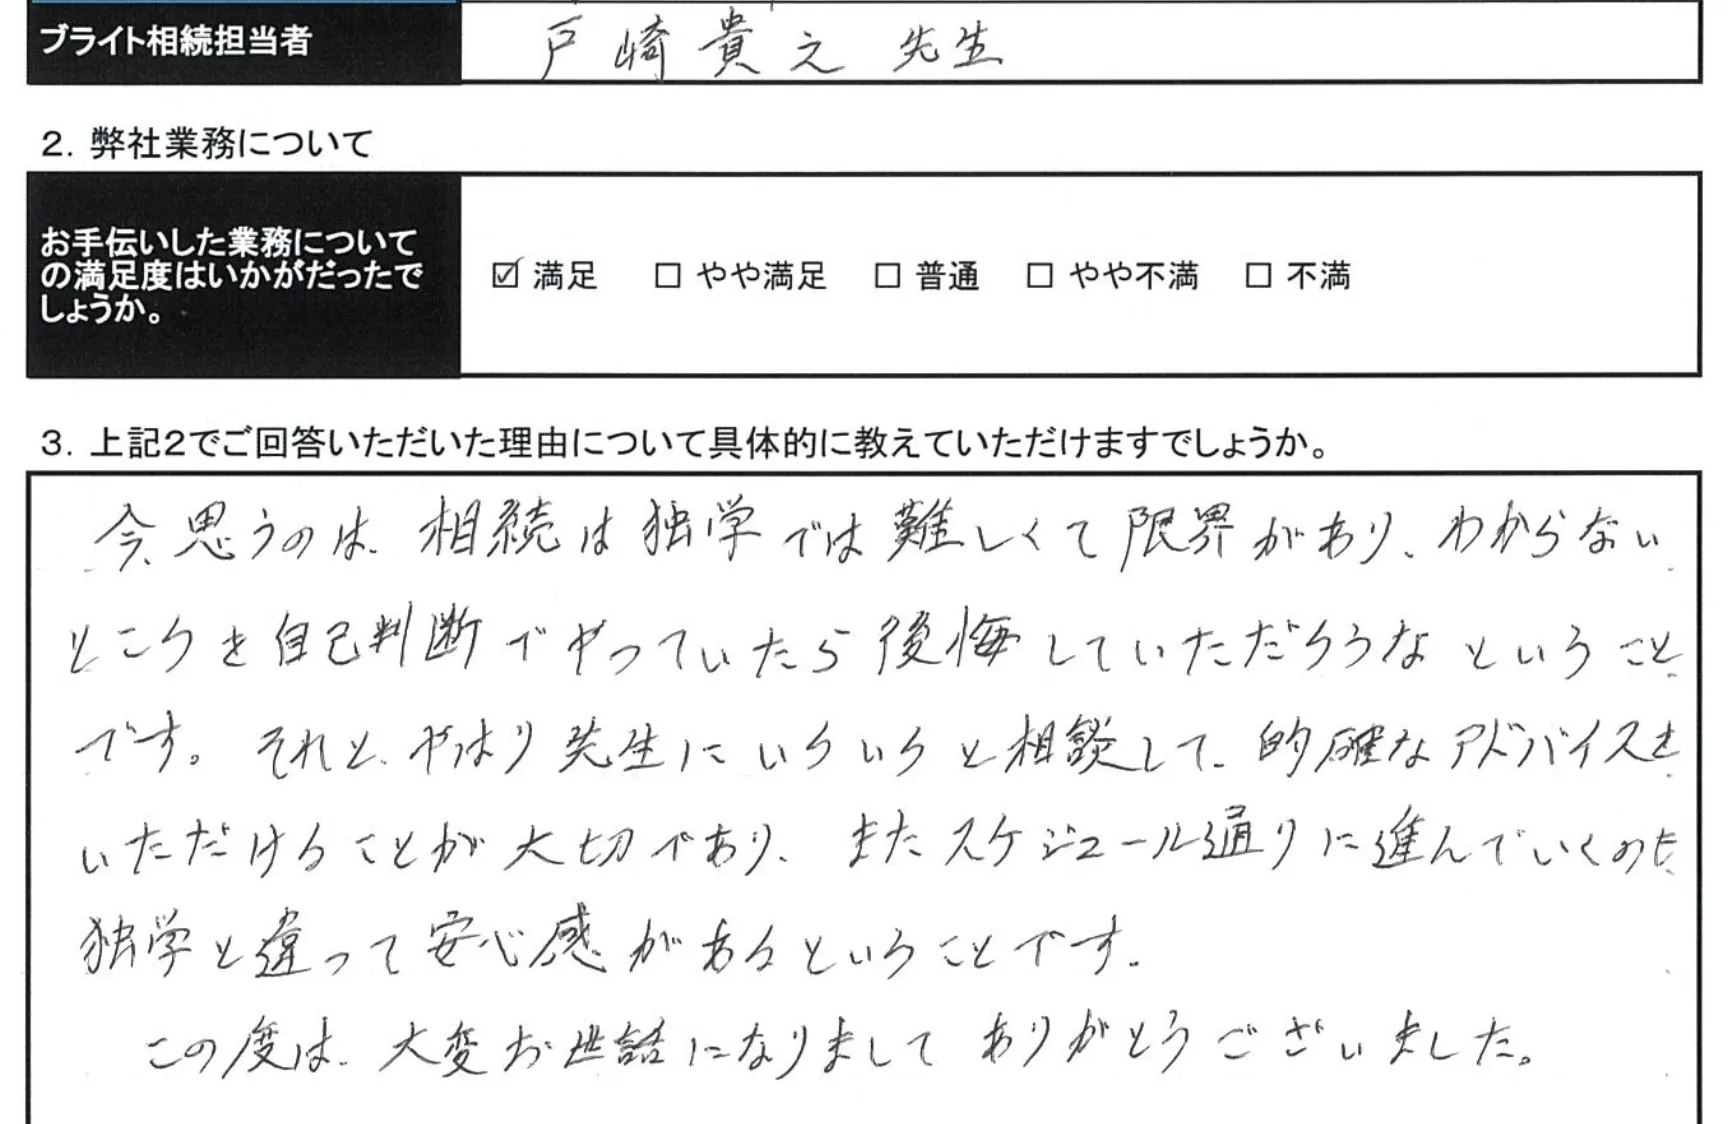 ブライト相続担当者 戸崎貴之 先生
2. 弊社業務について
お手伝いした業務について
の満足度はいかがだったで
しょうか。
☑ 満足 □ やや満足 □ 普通 □ やや不満 □ 不満
3. 上記2でご回答いただいた理由について具体的に教えていただけますでしょうか。
今、思うのは、相続は独学では難しくて限界があり、わからない
ところを自己判断でやっていたら後悔していただろうなということ
です。それと、やはり先生にいろいろと相談して、的確なアドバイスを
いただけることが大切であり、またスケジュール通りに進んでいくのも
独学と違って安心感があるということです。
この度は、大変お世話になりましてありがとうございました。